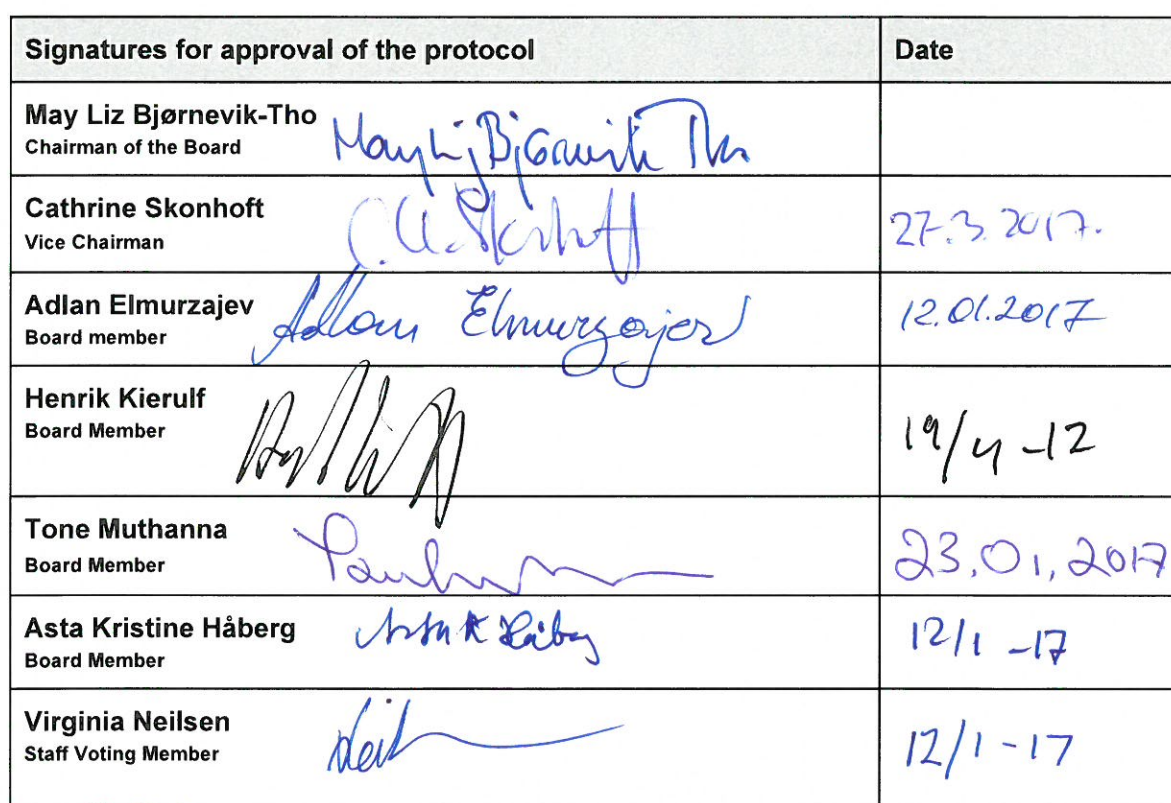 Signatures for approval of the protocol Date
May Liz Bjørnevik-Tho
Chairman of the Board
May Liz Bjørnevik Tho
Cathrine Skonhoft
Vice Chairman
C.U. Skonhoft 27.3.2017.
Adlan Elmurzajev
Board member
Adlan Elmurzajev 12.01.2017
Henrik Kierulf
Board Member
19/4 -12
Tone Muthanna
Board Member
23.01.2017
Asta Kristine Håberg
Board Member
Asta K Håberg 12/1 -17
Virginia Neilsen
Staff Voting Member
12/1 -17